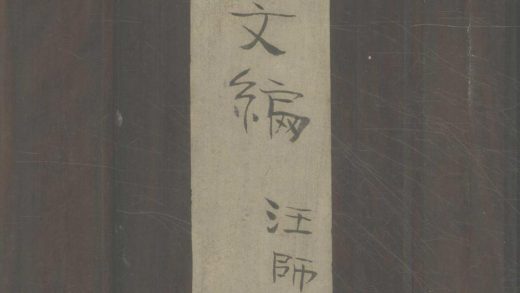 文編
汪師